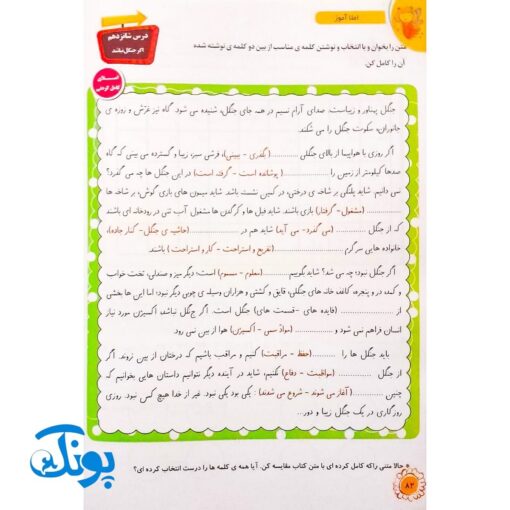 املا آموز
درس شانزدهم
اگر جنگل نباشد
متن را بخوان و با انتخاب و نوشتن کلمه ی مناسب از بین دو کلمه ی نوشته شده
آن را کامل کن.
املای
کامل کردنی
جنگل پهناور و زیباست. صدای آرام نسیم در همه جای جنگل، شنیده می شود. گاه نیز غرّش و زوزه ی
جانوران، سکوت جنگل را می شکند.
اگر روزی با هواپیما از بالای جنگلی ............ (بگذری - ببینی)، فرشی سبز، زیبا و گسترده می بینی که گاه
صدها کیلومتر از زمین را ............ ( پوشانده است - گرفته است) در این جنگل ها چه می گذرد؟
نمی دانیم. شاید پلنگی بر شاخه ی درختی، در کمین نشسته باشد. شاید میمون های بازی گوش، بر شاخه ها
............ (مشغول- گرفتار) بازی باشند. شاید فیل ها و کرگدن ها مشغول آب تنی در رودخانه ای باشند
که از جنگل ............ (می گذرد- می آید) شاید هم در ............ (حاشیه ی جنگل- کنار جاده)،
خانواده هایی سرگرم ............ (تفریح و استراحت - کار و استراحت ) باشند.
اگر جنگل نبود؛ چه می شد؟ شاید بگوییم ............ (معلوم - مسموم) است؛ دیگر میز و صندلی، تخت خواب
و کمد، در و پنجره، کاغذ، خانه های جنگلی، قایق و کشتی و هزاران وسیله ی چوبی دیگر نبود؛ اما این ها بخشی
از ............ (فایده های - قسمت های) جنگل است. اگر جنگل نباشد، اکسیژن مورد نیاز
انسان فراهم نمی شود و ............ (موادّ سمی - اکسیژن) هوا از بین نمی رود.
باید جنگل ها را ............ (حفظ - مراقبت) کنیم و مراقب باشیم که درختان از بین نروند. اگر
از جنگل ............ (مواظبت - دفاع) نکنیم، شاید در آینده دیگر نتوانیم داستان هایی بخوانیم که
چنین ............ ( آغاز می شوند - شروع می شدند) : یکی بود یکی نبود. غیر از خدا هیچ کس نبود. روزی
روزگاری در یک جنگل زیبا و دور...
حالا متنی را که کامل کرده ای با متن کتاب مقایسه کن. آیا همه ی کلمه ها را درست انتخاب کرده ای؟
۸۲
پونک